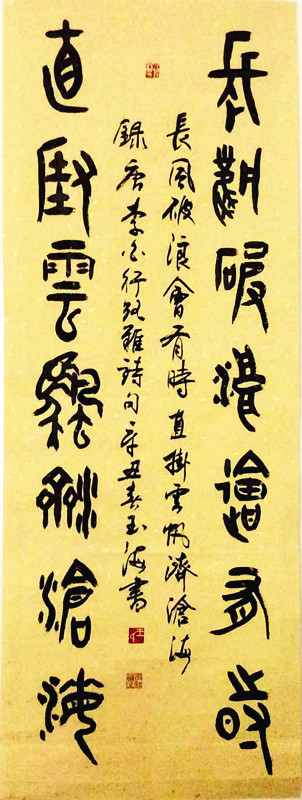 長風破浪會有時
直掛雲帆濟滄海
長風破浪會有時直掛雲帆濟滄海
錄唐李白行路難詩句辛丑春玉海書